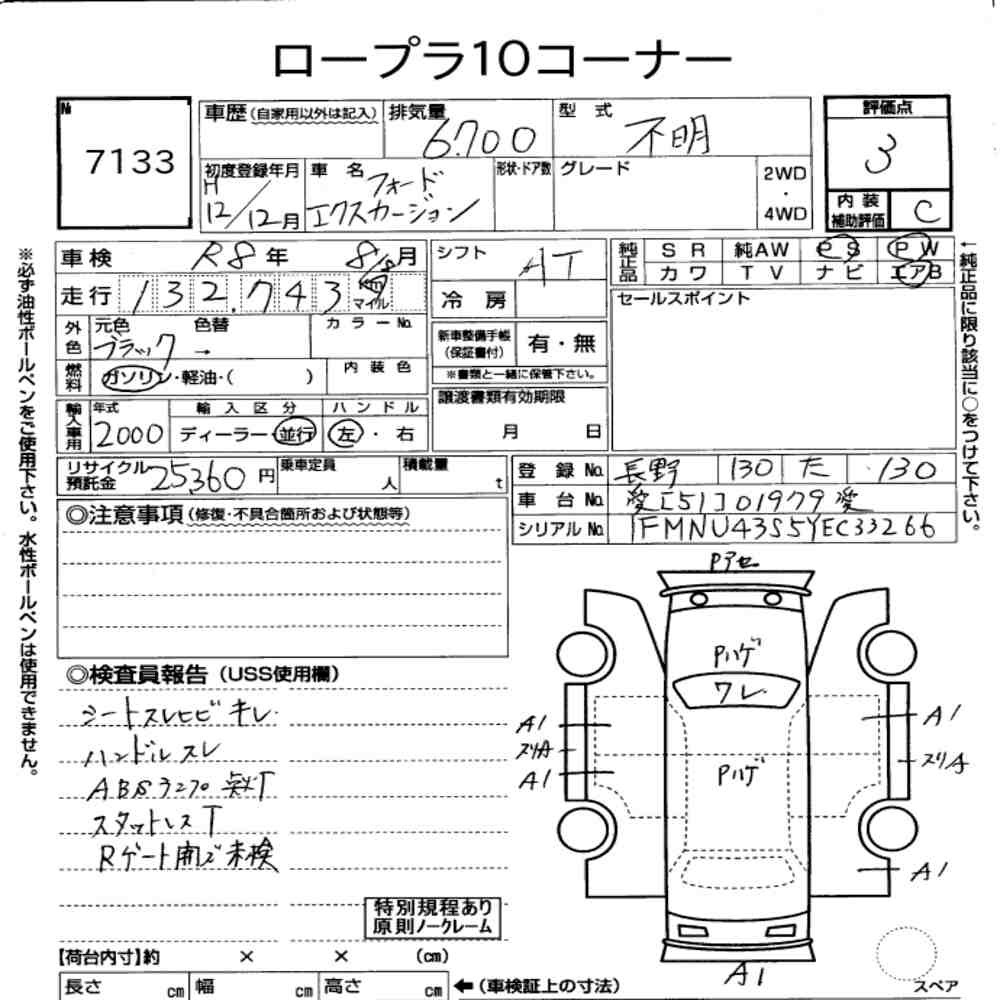 ロープラ10コーナー
№
7133
車歴(自家用以外は記入)
排気量
6700
型 式
不明
評価点
3
初度登録年月
H
12/12月
車 名
フォード
エクスカージョン
形状・ドア数
グレード
2WD
・
4WD
内 装
補助評価
C
車検 R8年 8月
シフト AT
純正品
S R 純AW P S P W
カ ワ T V ナ ビ エアB
走行 132,743
マイル
冷 房
セールスポイント
外色
元色 色替
ブラック →
カ ラ ー №
新車整備手帳
(保証書付)
有・無
※書類と一緒に保管下さい。
燃料
ガソリン・軽油・( )
内 装 色
譲渡書類有効期限
月 日
輸入車用
年式
2000
輸 入 区 分
ディーラー・並行
ハ ン ド ル
左・右
リサイクル
預託金
25,360円
乗車定員
人
積載量
t
登 録 №
長野 130 た ・130
車 台 №
愛[51]01979愛
シリアル №
1FMNU43S5YEC33266
◎注意事項(修復・不具合箇所および状態等)
◎検査員報告(USS使用欄)
シートスレヒビキレ
ハンドルスレ
スタットレスT
Rゲート開ズ未検
特別規程あり
原則ノークレーム
Pアセ
Pハゲ
ワレ
Pハゲ
A1
スリA
A1
A1
スリA
A1
A1
スペア
【荷台内寸】約 × × (cm)
長さ cm 幅 cm 高さ cm
←(車検証上の寸法)
※必ず油性ボールペンをご使用下さい。水性ボールペンは使用できません。
←純正品に限り該当に○をつけて下さい。